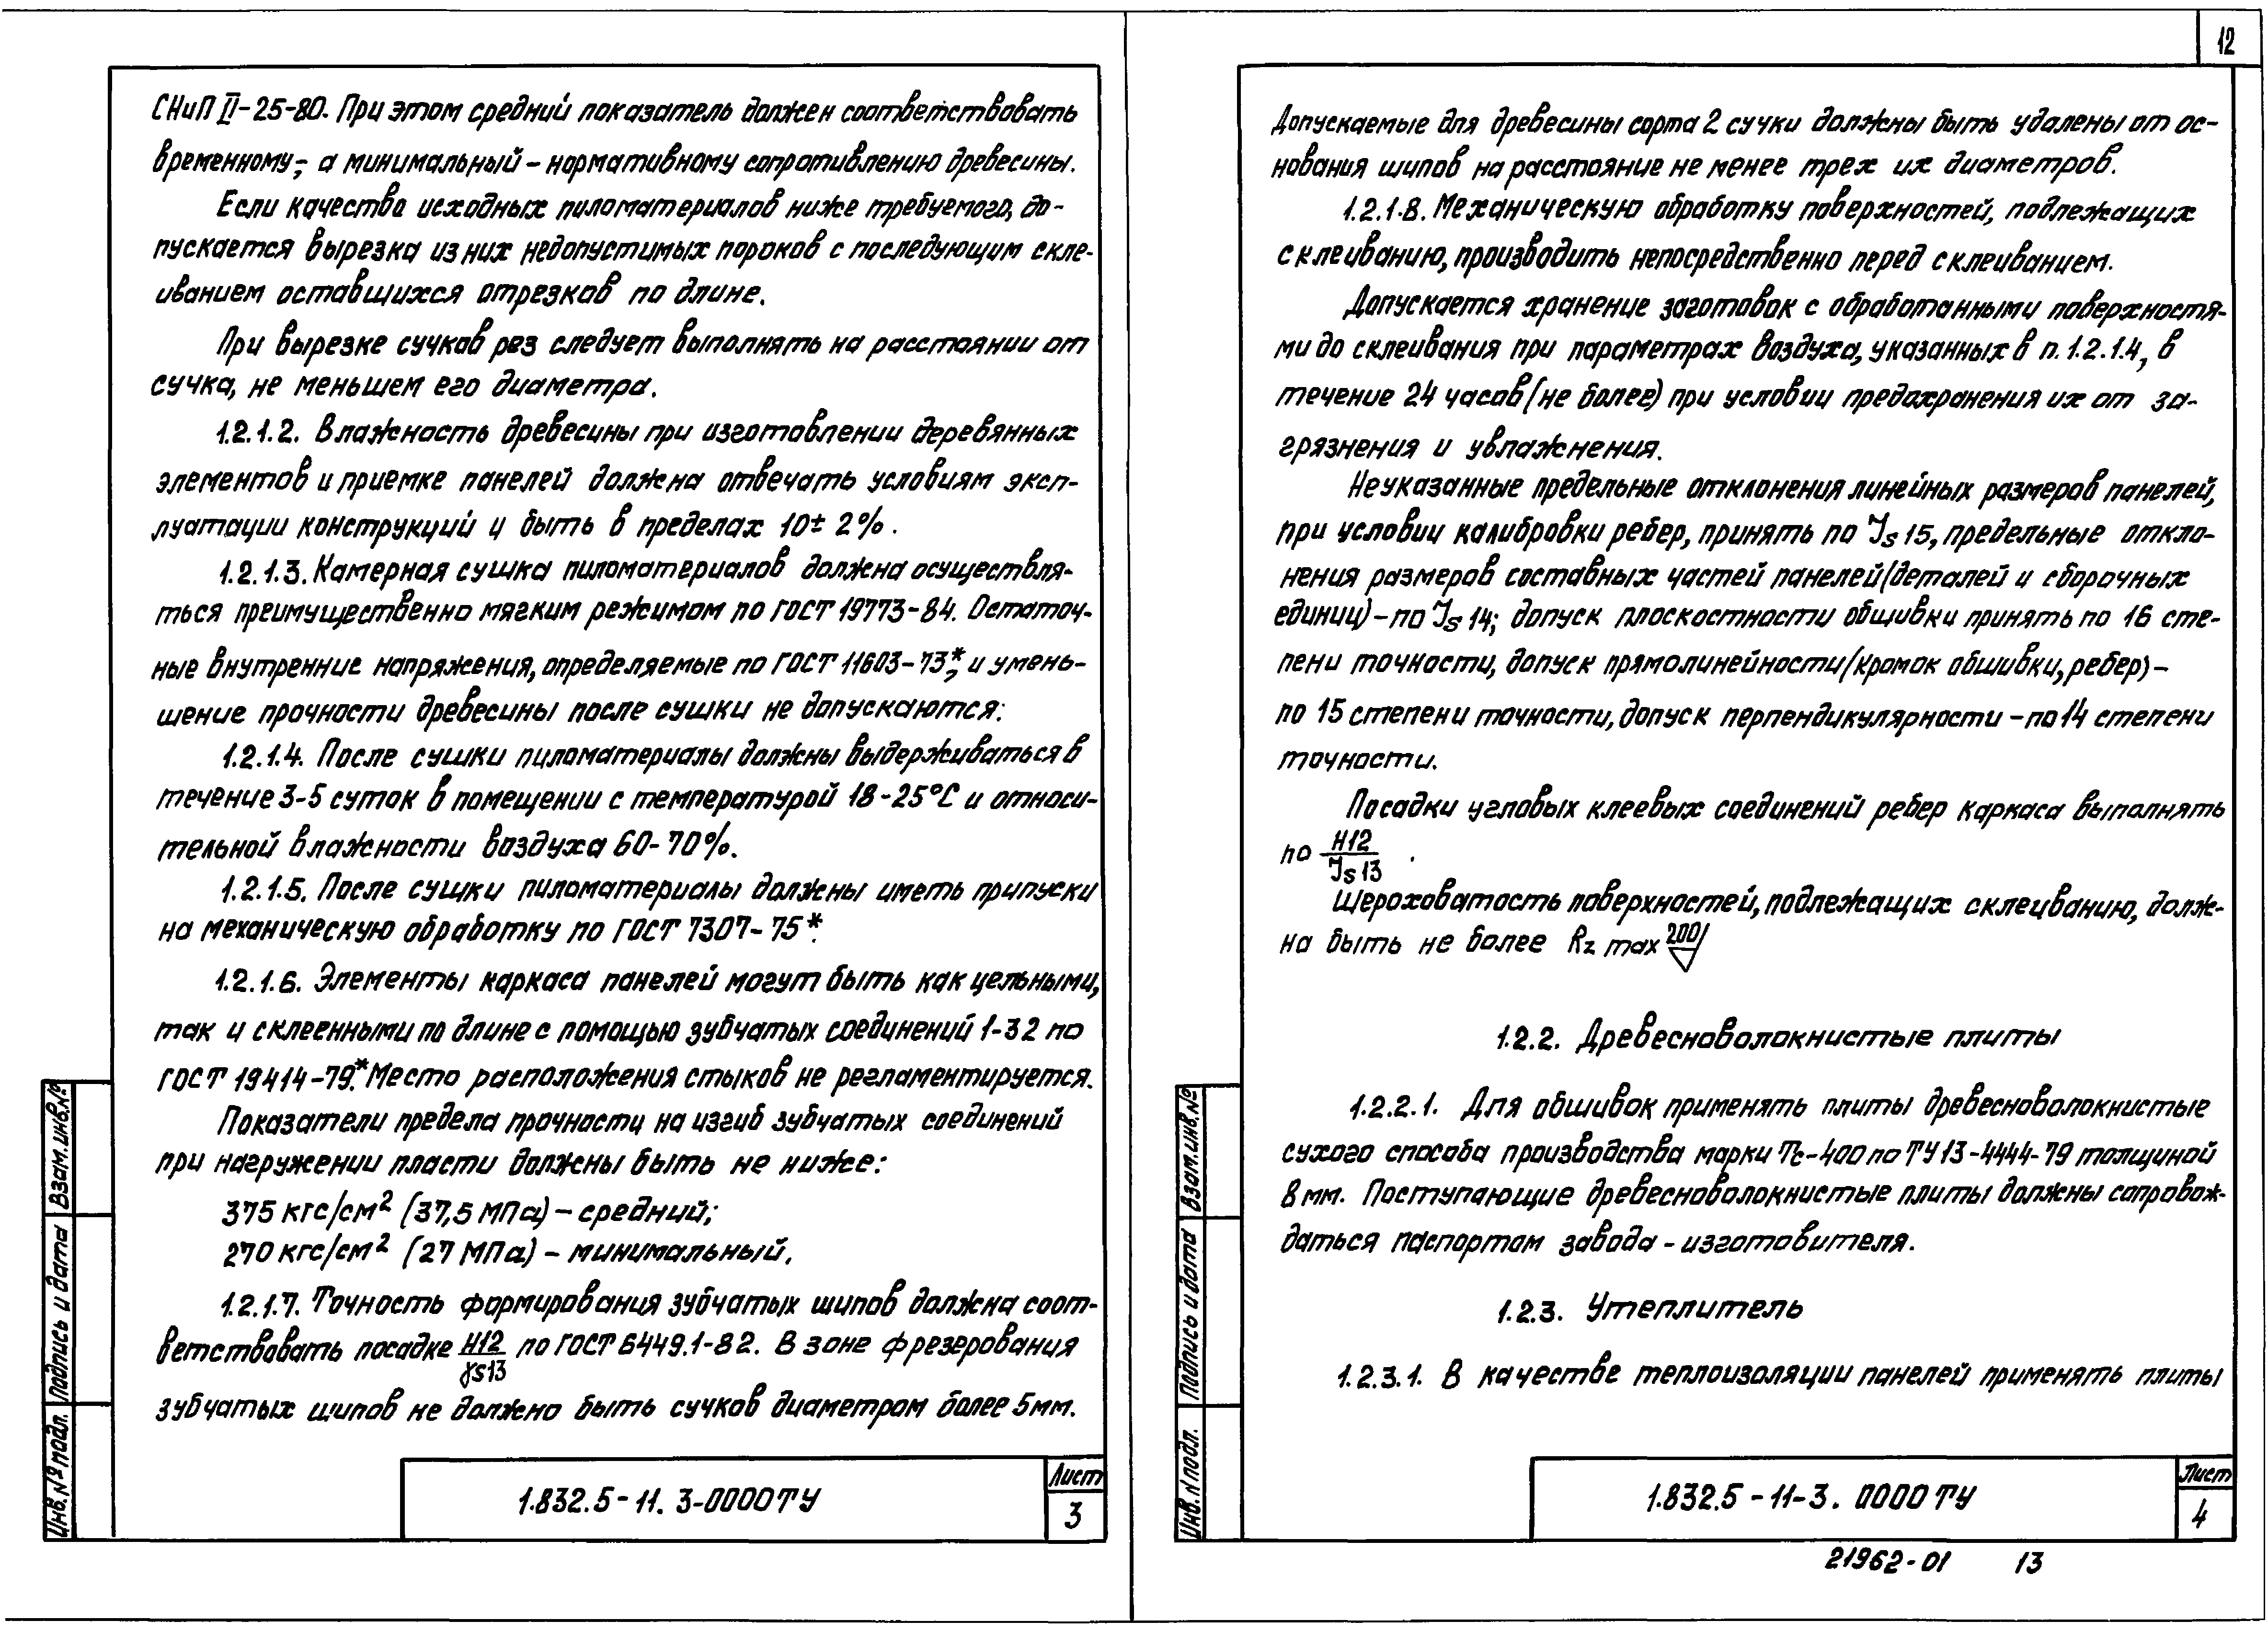 СНиП II-25-80. При этом средний показатель должен соответствовать
временному,- а минимальный - нормативному сопротивлению древесины.
Если качество исходных пиломатериалов ниже требуемого, до-
пускается вырезка из них недопустимых пороков с последующим скле-
иванием оставшихся отрезков по длине.
При вырезке сучков рез следует выполнять на расстоянии от
сучка, не меньшем его диаметра.
1.2.1.2. Влажность древесины при изготовлении деревянных
элементов и приемке панелей должна отвечать условиям эксп-
луатации конструкций и быть в пределах 10± 2%.
1.2.1.3. Камерная сушка пиломатериалов должна осуществля-
ться преимущественно мягким режимом по ГОСТ 19773-84. Остаточ-
ные внутренние напряжения, определяемые по ГОСТ 11603-73*, и умень-
шение прочности древесины после сушки не допускаются.
1.2.1.4. После сушки пиломатериалы должны выдерживаться в
течение 3-5 суток в помещении с температурой 18-25°С и относи-
тельной влажности воздуха 60-70%.
1.2.1.5. После сушки пиломатериалы должны иметь припуски
на механическую обработку по ГОСТ 7307-75*.
1.2.1.6. Элементы каркаса панелей могут быть как цельными,
так и склеенными по длине с помощью зубчатых соединений 1-32 по
ГОСТ 19414-79*. Место расположения стыков не регламентируется.
Показатели предела прочности на изгиб зубчатых соединений
при нагружении пласти должны быть не ниже:
375 кгс/см² (37,5 МПа) - средний;
270 кгс/см² (27 МПа) - минимальный.
1.2.1.7. Точность формирования зубчатых шипов должна соот-
ветствовать посадке H12/γs13 по ГОСТ 6449.1-82. В зоне фрезерования
зубчатых шипов не должно быть сучков диаметром более 5мм.
Взам.инв.№
Подпись и дата
Инв.№ подл.
1.832.5-11. 3-0000ТУ
Лист
3
12
Допускаемые для древесины сорта 2 сучки должны быть удалены от ос-
нования шипов на расстояние не менее трех их диаметров.
1.2.1.8. Механическую обработку поверхностей, подлежащих
склеиванию, производить непосредственно перед склеиванием.
Допускается хранение заготовок с обработанными поверхностя-
ми до склеивания при параметрах воздуха, указанных в п.1.2.1.4, в
течение 24 часов (не более) при условии предохранения их от за-
грязнения и увлажнения.
Неуказанные предельные отклонения линейных размеров панелей,
при условии калибровки ребер, принять по Js 15, предельные откло-
нения размеров составных частей панелей (деталей и сборочных
единиц) - по Js 14; допуск плоскостности обшивки принять по 16 сте-
пени точности, допуск прямолинейности (кромок обшивки, ребер) -
по 15 степени точности, допуск перпендикулярности - по 14 степени
точности.
Посадки угловых клеевых соединений ребер каркаса выполнять
по H12/Js13 .
Шероховатость поверхностей, подлежащих склеиванию, долж-
на быть не более Rz max 200/
1.2.2. Древесноволокнистые плиты
1.2.2.1. Для обшивок применять плиты древесноволокнистые
сухого способа производства марки Тс-400 по ТУ 13-4444-79 толщиной
8 мм. Поступающие древесноволокнистые плиты должны сопровож-
даться паспортом завода-изготовителя.
1.2.3. Утеплитель
1.2.3.1. В качестве теплоизоляции панелей применять плиты
Взам.инв.№
Подпись и дата
Инв.N подл.
1.832.5-11-3. 0000ТУ
Лист
4
21962-01 13